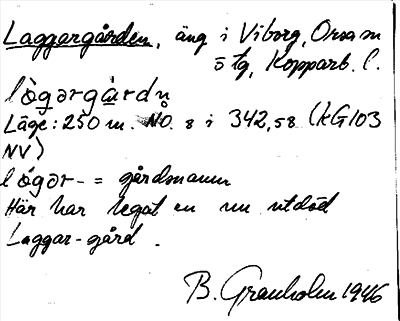 Laggargården, äng i Viborg, Orsa sn
ö tg, Kopparb. l.
lògərgàrdn̥
Läge: 250 m. NO. 8 i 342,58 (kG103
NV)
lógər- = gårdsnamn
Här har legat en nu utdöd
Laggar-gård.
B. Granholm 1946